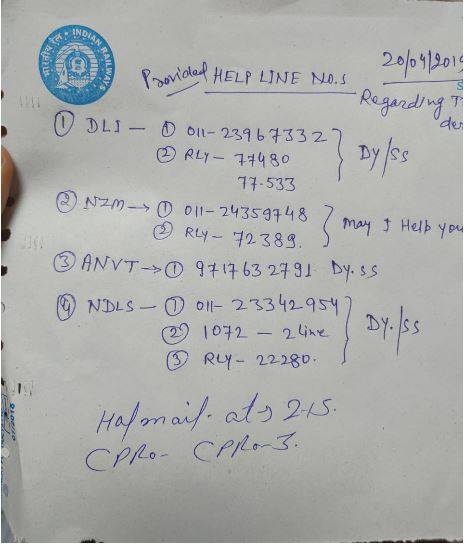 भारतीय रेल INDIAN RAILWAYS
20/04/2019
Provided HELP LINE NO.s
Regarding T
der
① DLI – ① 011-23967332
② RLY - 77480
77.533
Dy/SS
② NZM → ① 011-24359748
② RLY - 72389.
May I Help you
③ ANVT → ① 9717632791 Dy.SS
④ NDLS – ① 011-23342954
② 1072 – 2 line
③ RLY-22280.
DY./SS
at 2.15.
CPRO- CPRO-3.
07/2018